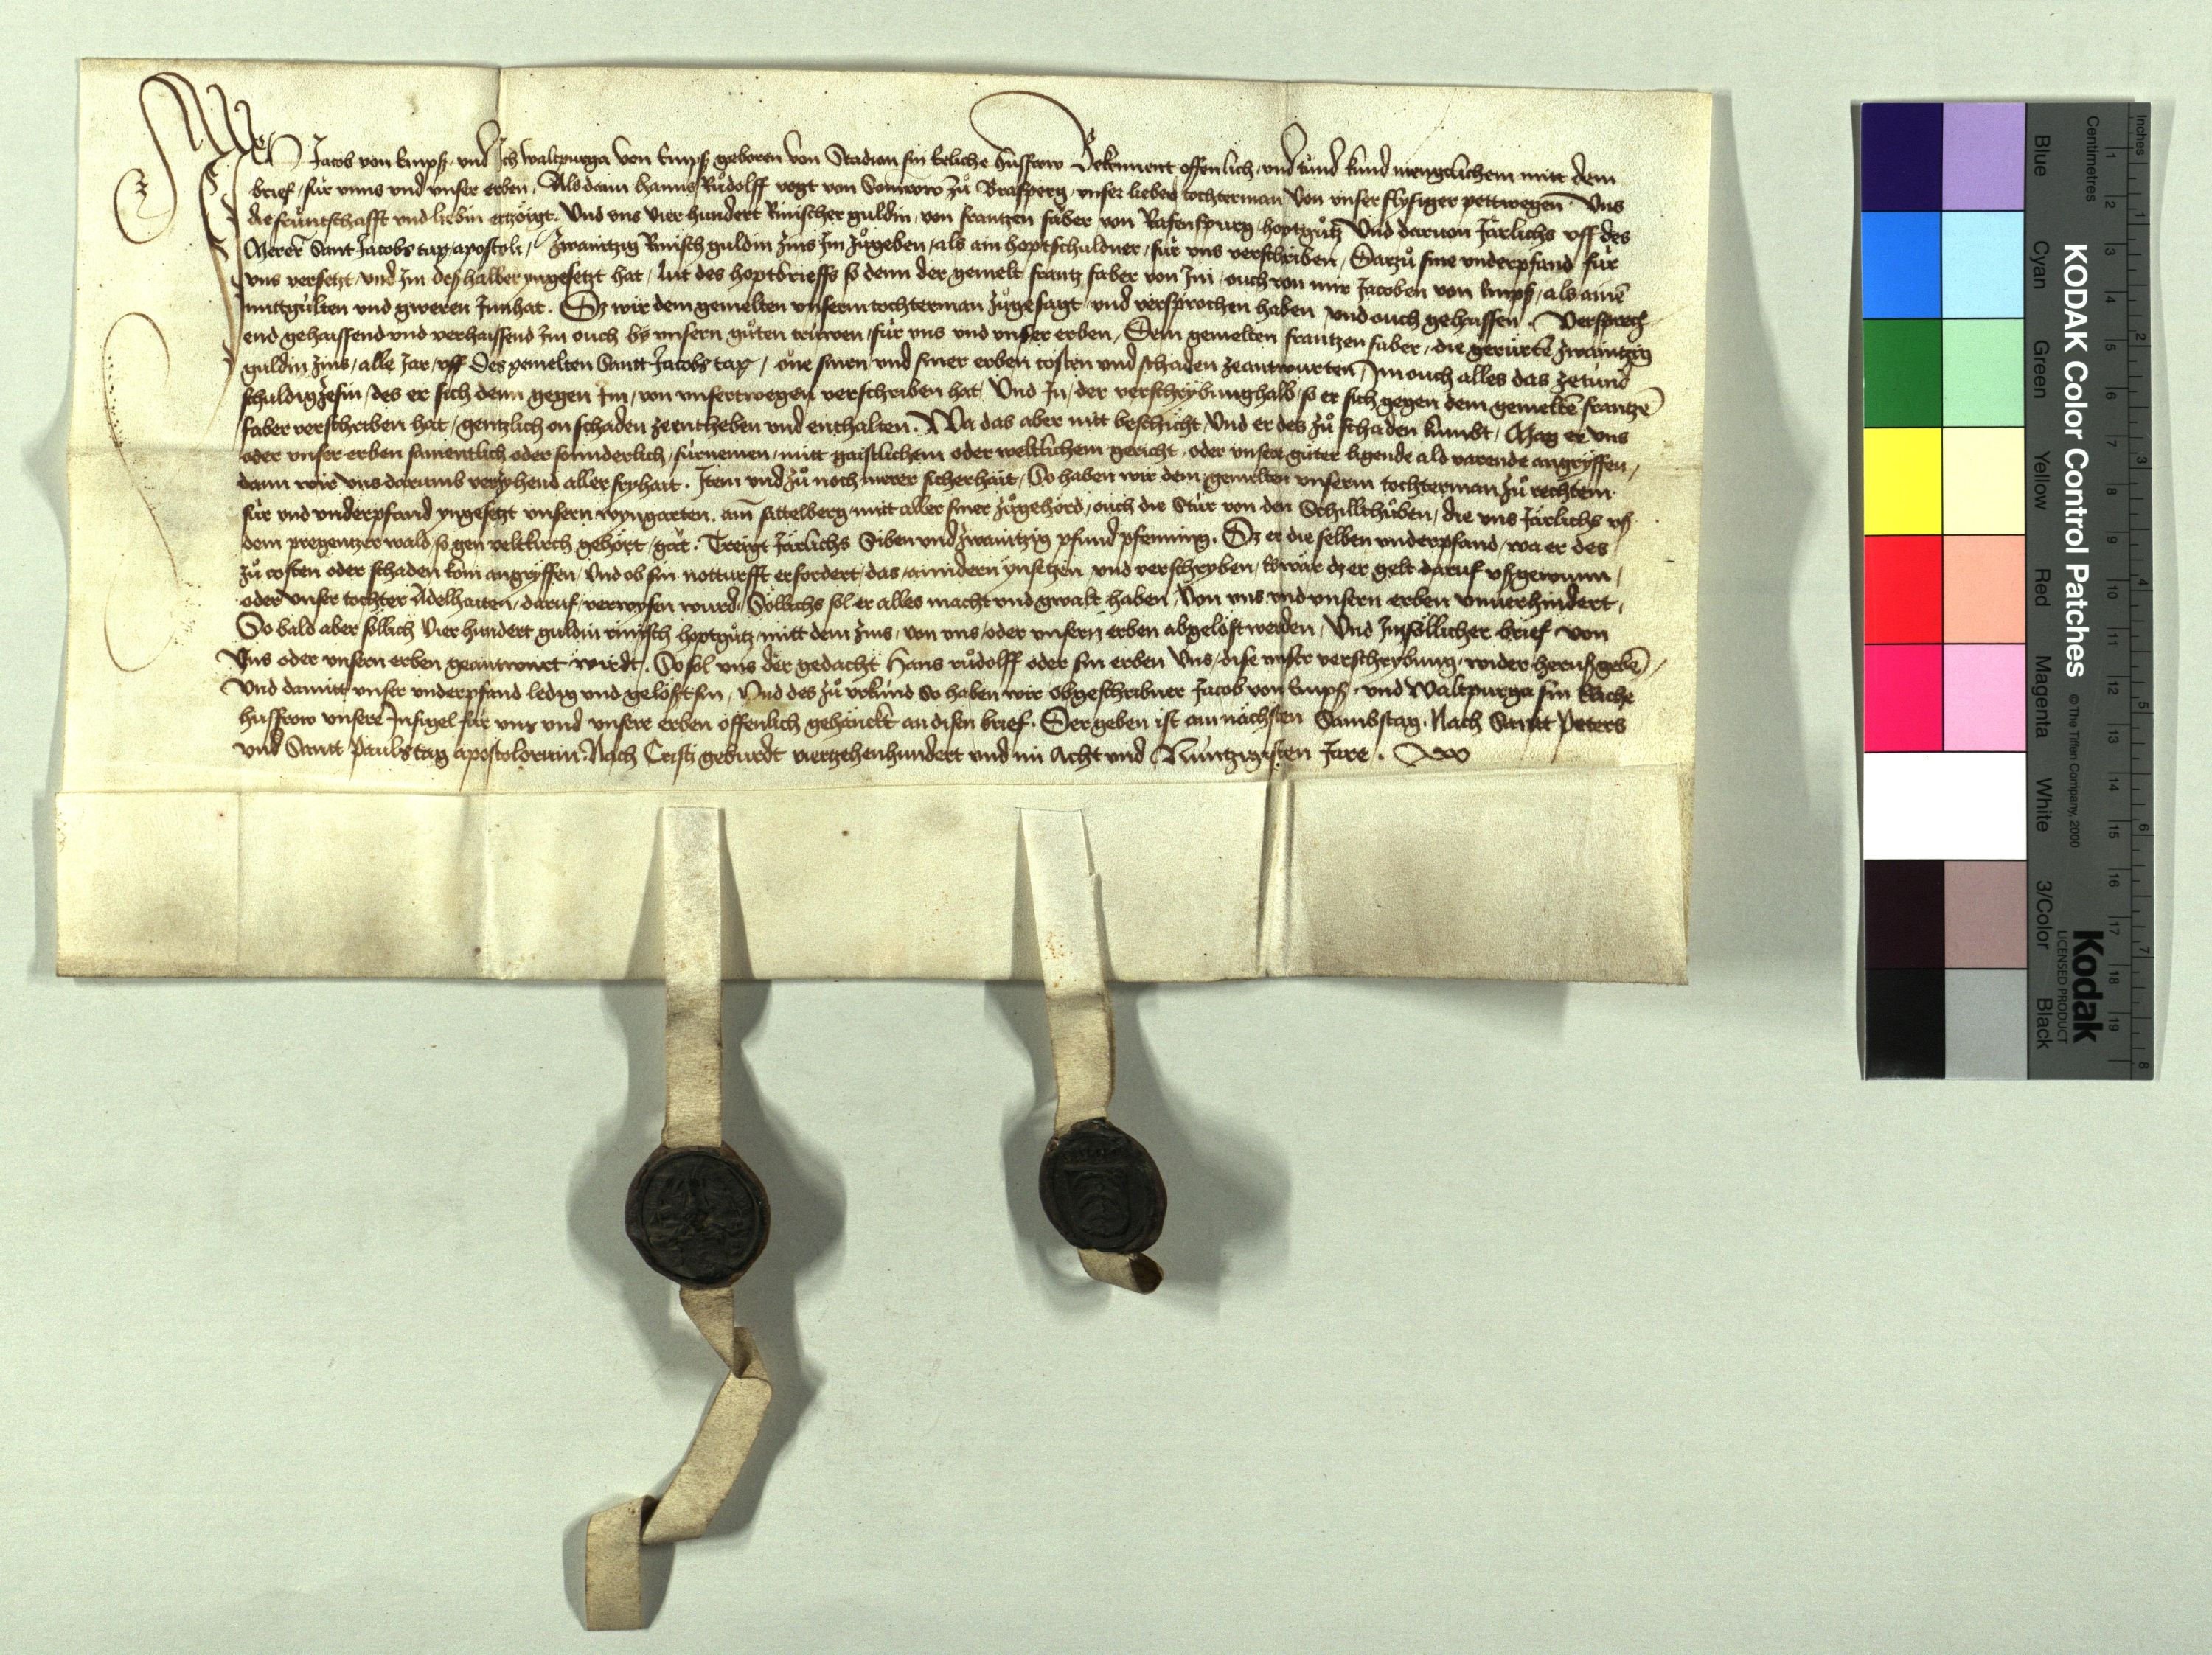 Wir Jacob von Emps, vnd Ich walpurga von Emps geboren von Stadion sin Eeliche husfrow Bekennent offenlich, vnd tund kund mengclichem mitt dem
brief, für vnns vnd vnser erben, Als dann hanns Rudolff vogt von Somrow zů Brasperg, vnser lieber tochterman von vnser flysiger pettwegen Vns
die früntschafft vnd liebin erzöigt. Vnd vns vier hundert Rinischer guldin, von frantzen faber von Rafenspurg, hoptgůtz Vnd daruon Järlichs vff des
Merern Sant Jacobs tag, apostoli, Zwaintzig Rinisch guldin zins Im zůgeben, als ain hoptschuldner, für vns verschriben, Darzů sine vnderpfand für
vns versetzt, vnd Im deshalber yngesetzt hat, lut des hoptbrieffs so denn der gemelt frantz faber von Im, ouch von mir Jacoben von Emps, als ainē
mittgülten vnd gweren Innhat. Dz wir dem gemelten vnserm tochterman zůgesagt, vnd versprochen haben vnd ouch gehaissen. Versprech
end gehaissend vnd verhaissend Im ouch by vnsern gůten trüwen, für vns vnd vnser erben, Dem gemelten frantzen faber, die gerürtē zwaintzig
guldin zins, alle Jar, vff Des gemelten Santt Jacobs tag, one sinen vnd siner erben costen vnd schaden zeantwurten, Im ouch alles das zetund
schuldig zesin, des er sich denn gegen Im, von vnsertwegen verschriben hat Vnd In, der verschrybunghalb, so er sich gegen dem gemeltē frantzē
faber verschriben hat, gentzlich on schaden zeentheben vnd enthalten. Wa das aber nitt beschicht, Vnd er des zů schaden kumbt, Mag er vns
oder vnser erben samentlich oder sonnderlich, fürnemen, mitt gaistlichem oder weltlichem gericht, oder vnsere güter ligende ald varende angryffen,
dann wir vns darumb verzyhend aller fryhait. Item vnd zů noch merer sicherhait, So haben wir dem gemelten vnserm tochterman zů rechtem
für vnd vnderpfand yngesetzt vnsern wyngarten. am sattelberg, mitt aller siner zůgehörd, ouch die Stür von den Schillthůben, die vns Järlichs vs
dem pregentzer wald, so gen veltkirch gehört, gat. Treigt Järlichs Siben vnd zwaintzig pfund pfenning. Dz er die selben vnderpfand, wa er des
zů costen oder schaden kom angryffen, Vnd ob sin notturfft erfordert, das, ainndern ynsetzen, vnd verschryben, Es wär dz er gelt daruf vsgewunn,
oder vnser tochter Adelhaiten, daruf, verwysen wurd, Söllichs sol er alles macht vnd gwalt haben, Von vns vnd vnsern erben vnuerhindert,
So bald aber söllich Vier hundert guldin rinisch hoptgůtz, mitt dem zins, von vns, oder vnsern erben abgelöst werden, Vnd Im söllicher brief von
Vns oder vnsern erben geantwurt wirdt, So sol vns der gedacht Hans růdolff oder sin erben Vns, dise vnser verschrybung, wider herus gebē,
Vnd damitt vnser vnderpfand ledig vnd gelöst sin, Vnd des zů vrkund So haben wir obgeschribner Jacob von Emps, vnd Walpurga sin Eliche
husfrow vnsere Insigel für vns vnd vnsere erben offenlich gehänckt an disen brief. Der geben ist am nächsten Sambstag. Nach Santt Peters
vnd Santt Paulstag apostolorum. Nach Cristi geburdt vierzehenhundert vnd im Acht vnd Nüntzigisten Jare.
KODAK Color Control Patches © The Tiffen Company, 2000
Kodak
LICENSED PRODUCT
Blue Cyan Green Yellow Red Magenta White 3/Color Black
Centimetres 1 2 3 4 5 6 7 8 9 10 11 12 13 14 15 16 17 18 19
Inches 1 2 3 4 5 6 7 8